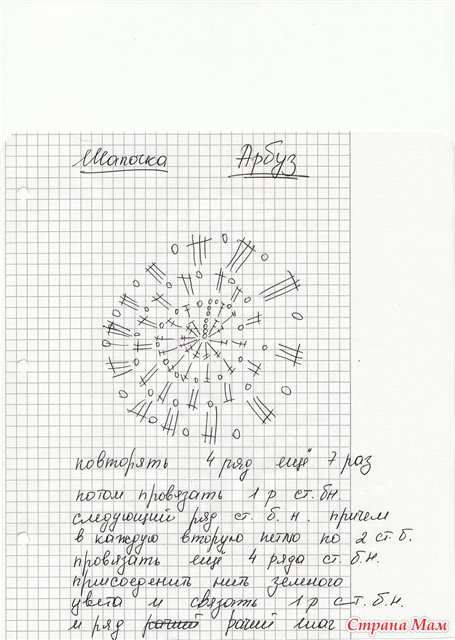 Шапочка Арбуз
повторять 4 ряд ещё 7 раз
потом провязать 1 р ст. бн.
следующий ряд ст. б. н. причем
в каждую вторую петлю по 2 ст. б.
провязать ещё 4 ряда ст. б.н.
присоеденить нить зеленого
цвета и связать 1 р ст. б.н.
и ряд рачий рачий шаг
Страна Мам